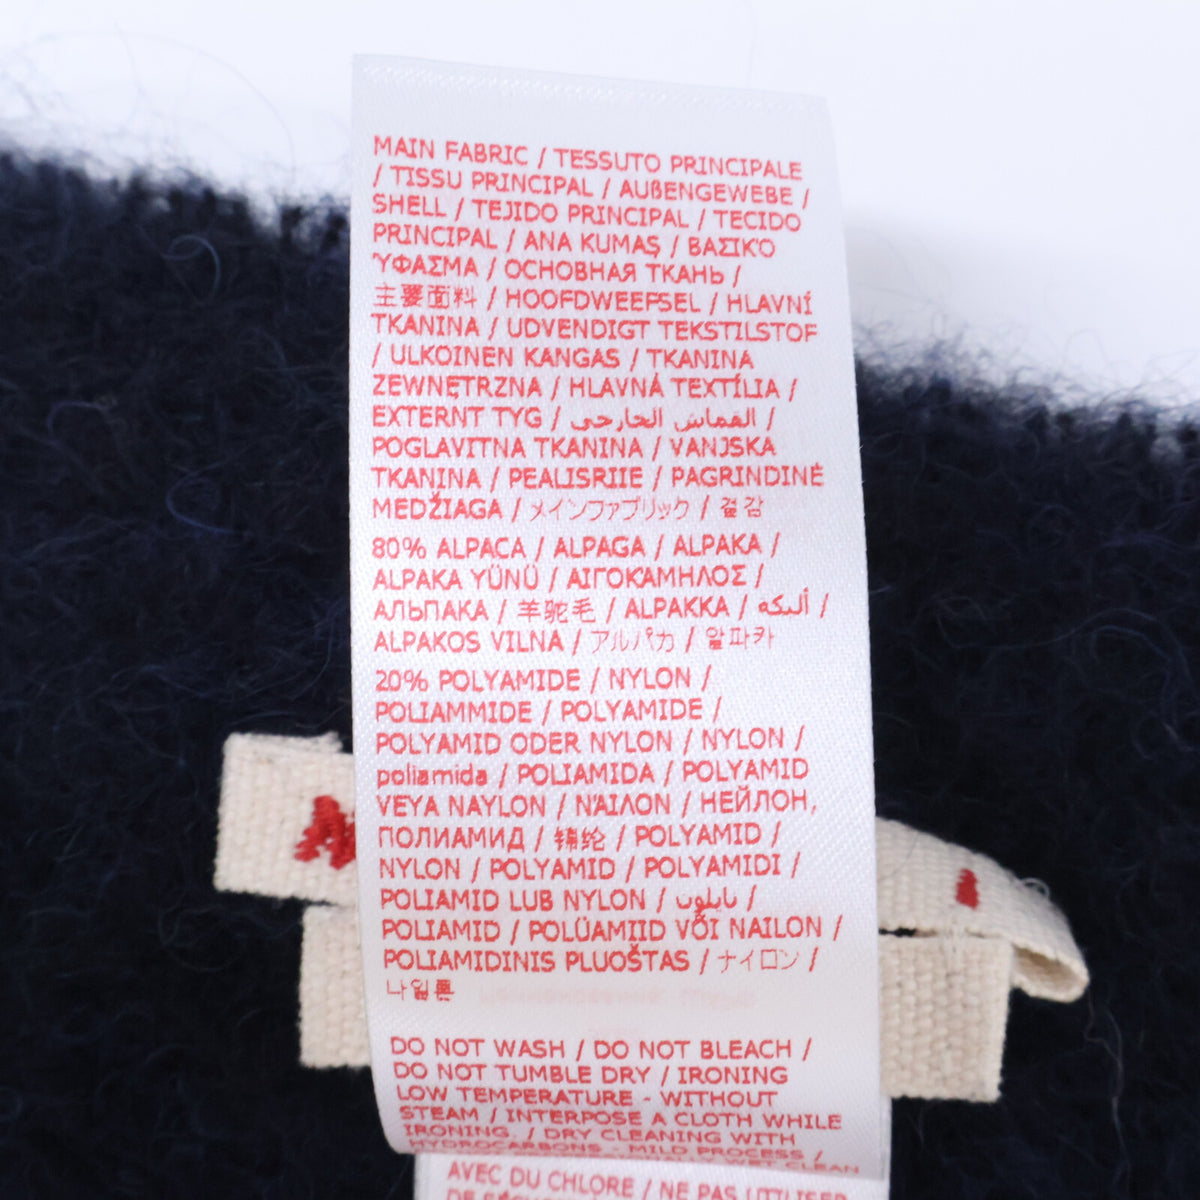 MAIN FABRIC / TESSUTO PRINCIPALE
/ TISSU PRINCIPAL / AUßENGEWEBE /
SHELL / TEJIDO PRINCIPAL / TECIDO
PRINCIPAL / ANA KUMAŞ / ΒΑΣΙΚΌ
ΎΦΑΣΜΑ / ОСНОВНАЯ ТКАНЬ /
主要面料 / HOOFDWEEFSEL / HLAVNÍ
TKANINA / UDVENDIGT TEKSTILSTOF
/ ULKOINEN KANGAS / TKANINA
ZEWNĘTRZNA / HLAVNÁ TEXTÍLIA /
EXTERNT TYG / القماش الخارجي /
POGLAVITNA TKANINA / VANJSKA
TKANINA / PEALISRIIE / PAGRINDINĖ
MEDŽIAGA / メインファブリック / 겉감
80% ALPACA / ALPAGA / ALPAKA /
ALPAKA YÜNÜ / ΑΙΓΟΚΆΜΗΛΟΣ /
АЛЬПАКА / 羊驼毛 / ALPAKKA / ألبكه /
ALPAKOS VILNA / アルパカ / 알파카
20% POLYAMIDE / NYLON /
POLIAMMIDE / POLYAMIDE /
POLYAMID ODER NYLON / NYLON /
poliamida / POLIAMIDA / POLYAMID
VEYA NAYLON / ΝΆΙΛΟΝ / НЕЙЛОН,
ПОЛИАМИД / 锦纶 / POLYAMID /
NYLON / POLYAMID / POLYAMIDI /
POLIAMID LUB NYLON / نايلون /
POLIAMID / POLÜAMIID VÕI NAILON /
POLIAMIDINIS PLUOŠTAS / ナイロン /
나일론
DO NOT WASH / DO NOT BLEACH /
DO NOT TUMBLE DRY / IRONING
LOW TEMPERATURE - WITHOUT
STEAM / INTERPOSE A CLOTH WHILE
IRONING. / DRY CLEANING WITH
HYDROCARBONS - MILD PROCESS /
WET CLEAN
AVEC DU CHLORE / NE PAS UTILISER